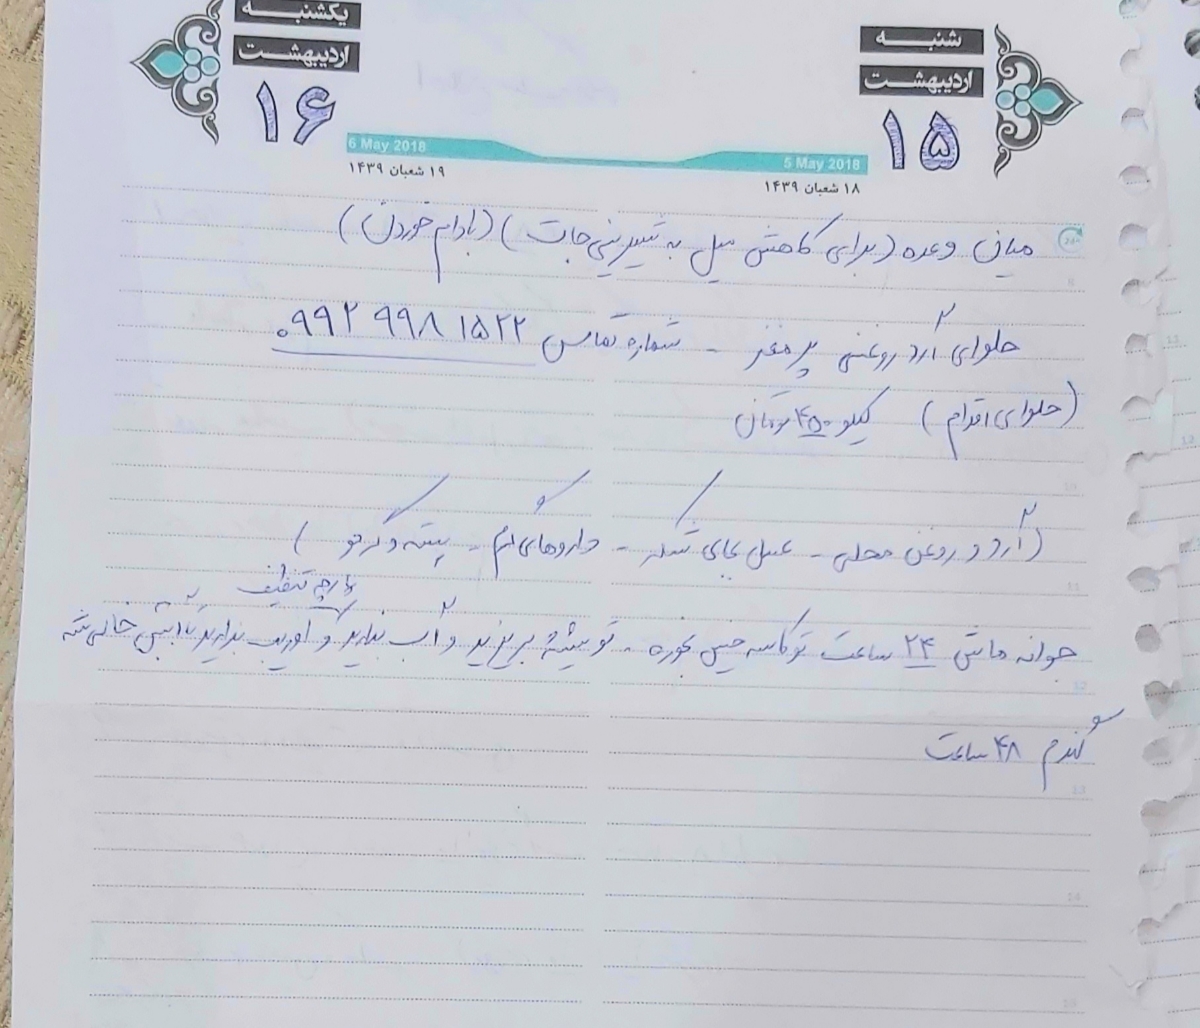 شنبه
اردیبهشت
۱۵
5 May 2018
۱۸ شعبان ۱۴۳۹
یکشنبه
اردیبهشت
۱۶
6 May 2018
۱۹ شعبان ۱۴۳۹
میان وعده (برای کاهش میل به شیرینی جات) (بادام خوردن)
حلوای آرد روغنی پر مغز - شماره تماس ۰۹۹۲ ۹۹۸ ۱۵۲۲
(حلوای اقدام) کیلو ۴۵۰ تومان
(آرد و روغن محلی - عسل بجای شکر - داروهای گرم - پسته و گردو)
پارچه تنظیف
جوانه ماش ۲۴ ساعت تو کاسه خیس بخوره - تو شیشه بریزید و آب نذارید و اوریب بذارید تا آبش خالی شه
گندم ۴۸ ساعت